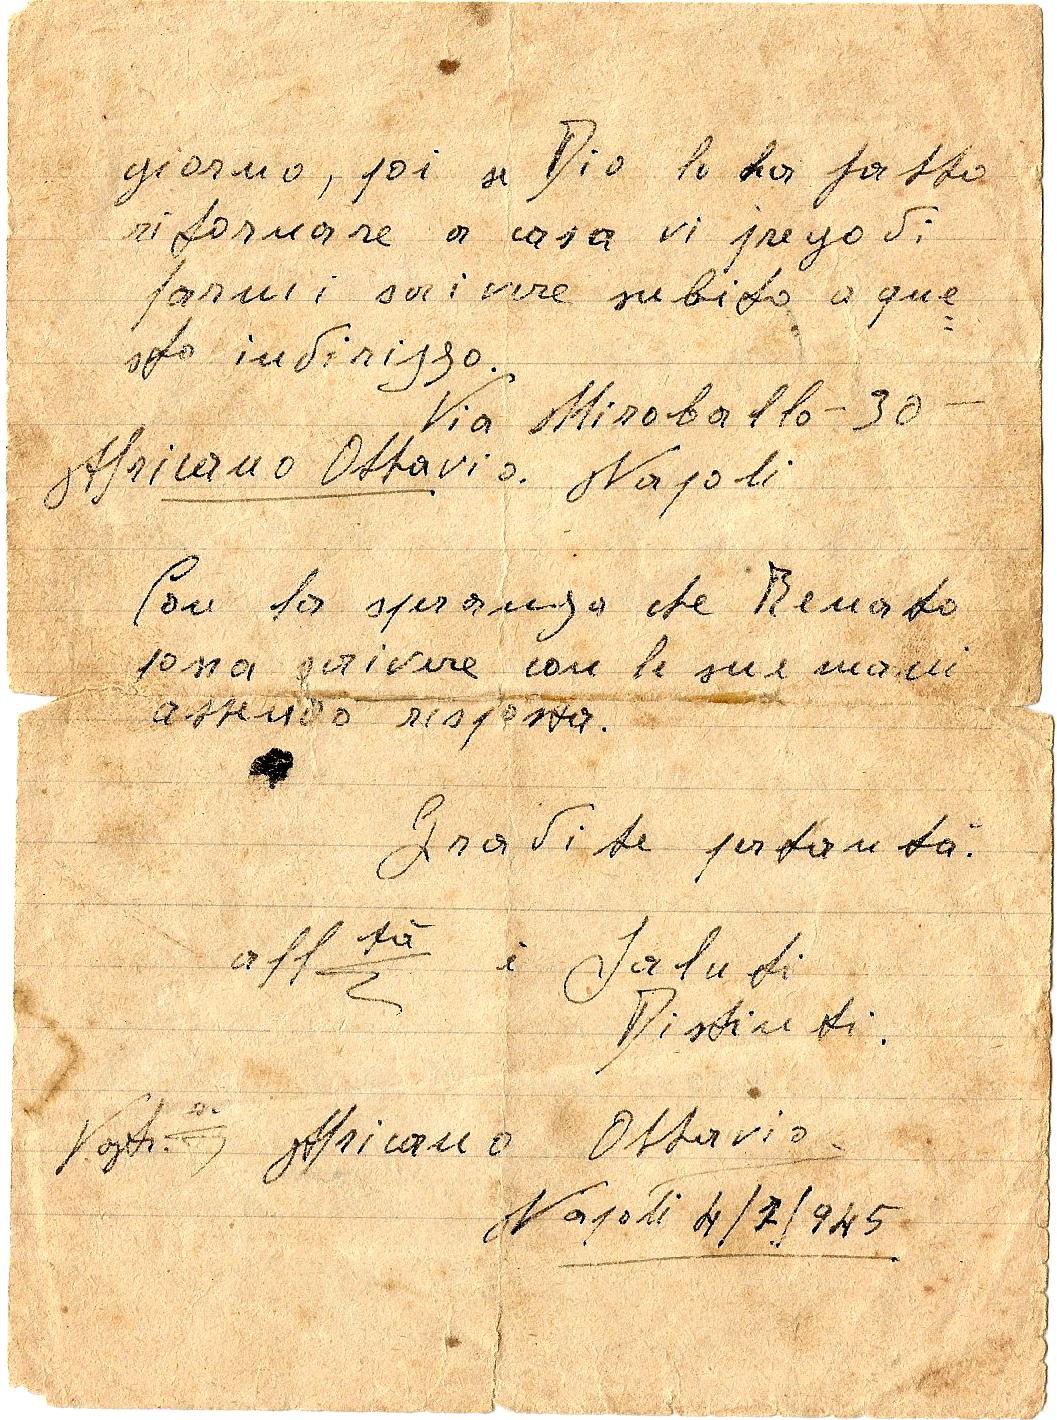 giorno, poi se Dio lo ha fatto
ritornare a casa vi prego di
farmi scrivere subito a que=
sto indirizzo.
Via Miroballo - 30 -
Africano Ottavio. Napoli
Con la speranza che Renato
possa scrivere con le sue mani
attendo risposta.
Gradite pertanta.
aff tà e Saluti
Distinti.
Vostr. Africano Ottavio.
Napoli 4/7/945